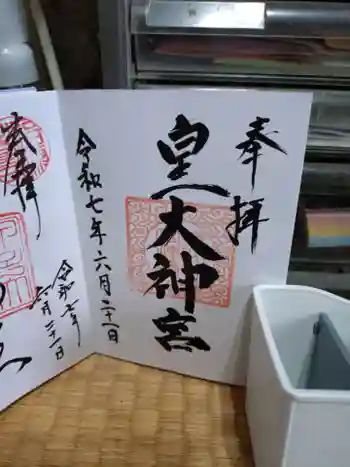 奉拝
皇大神宮
令和七年六月二十一日
奉拝
令和七年
六月二十一日